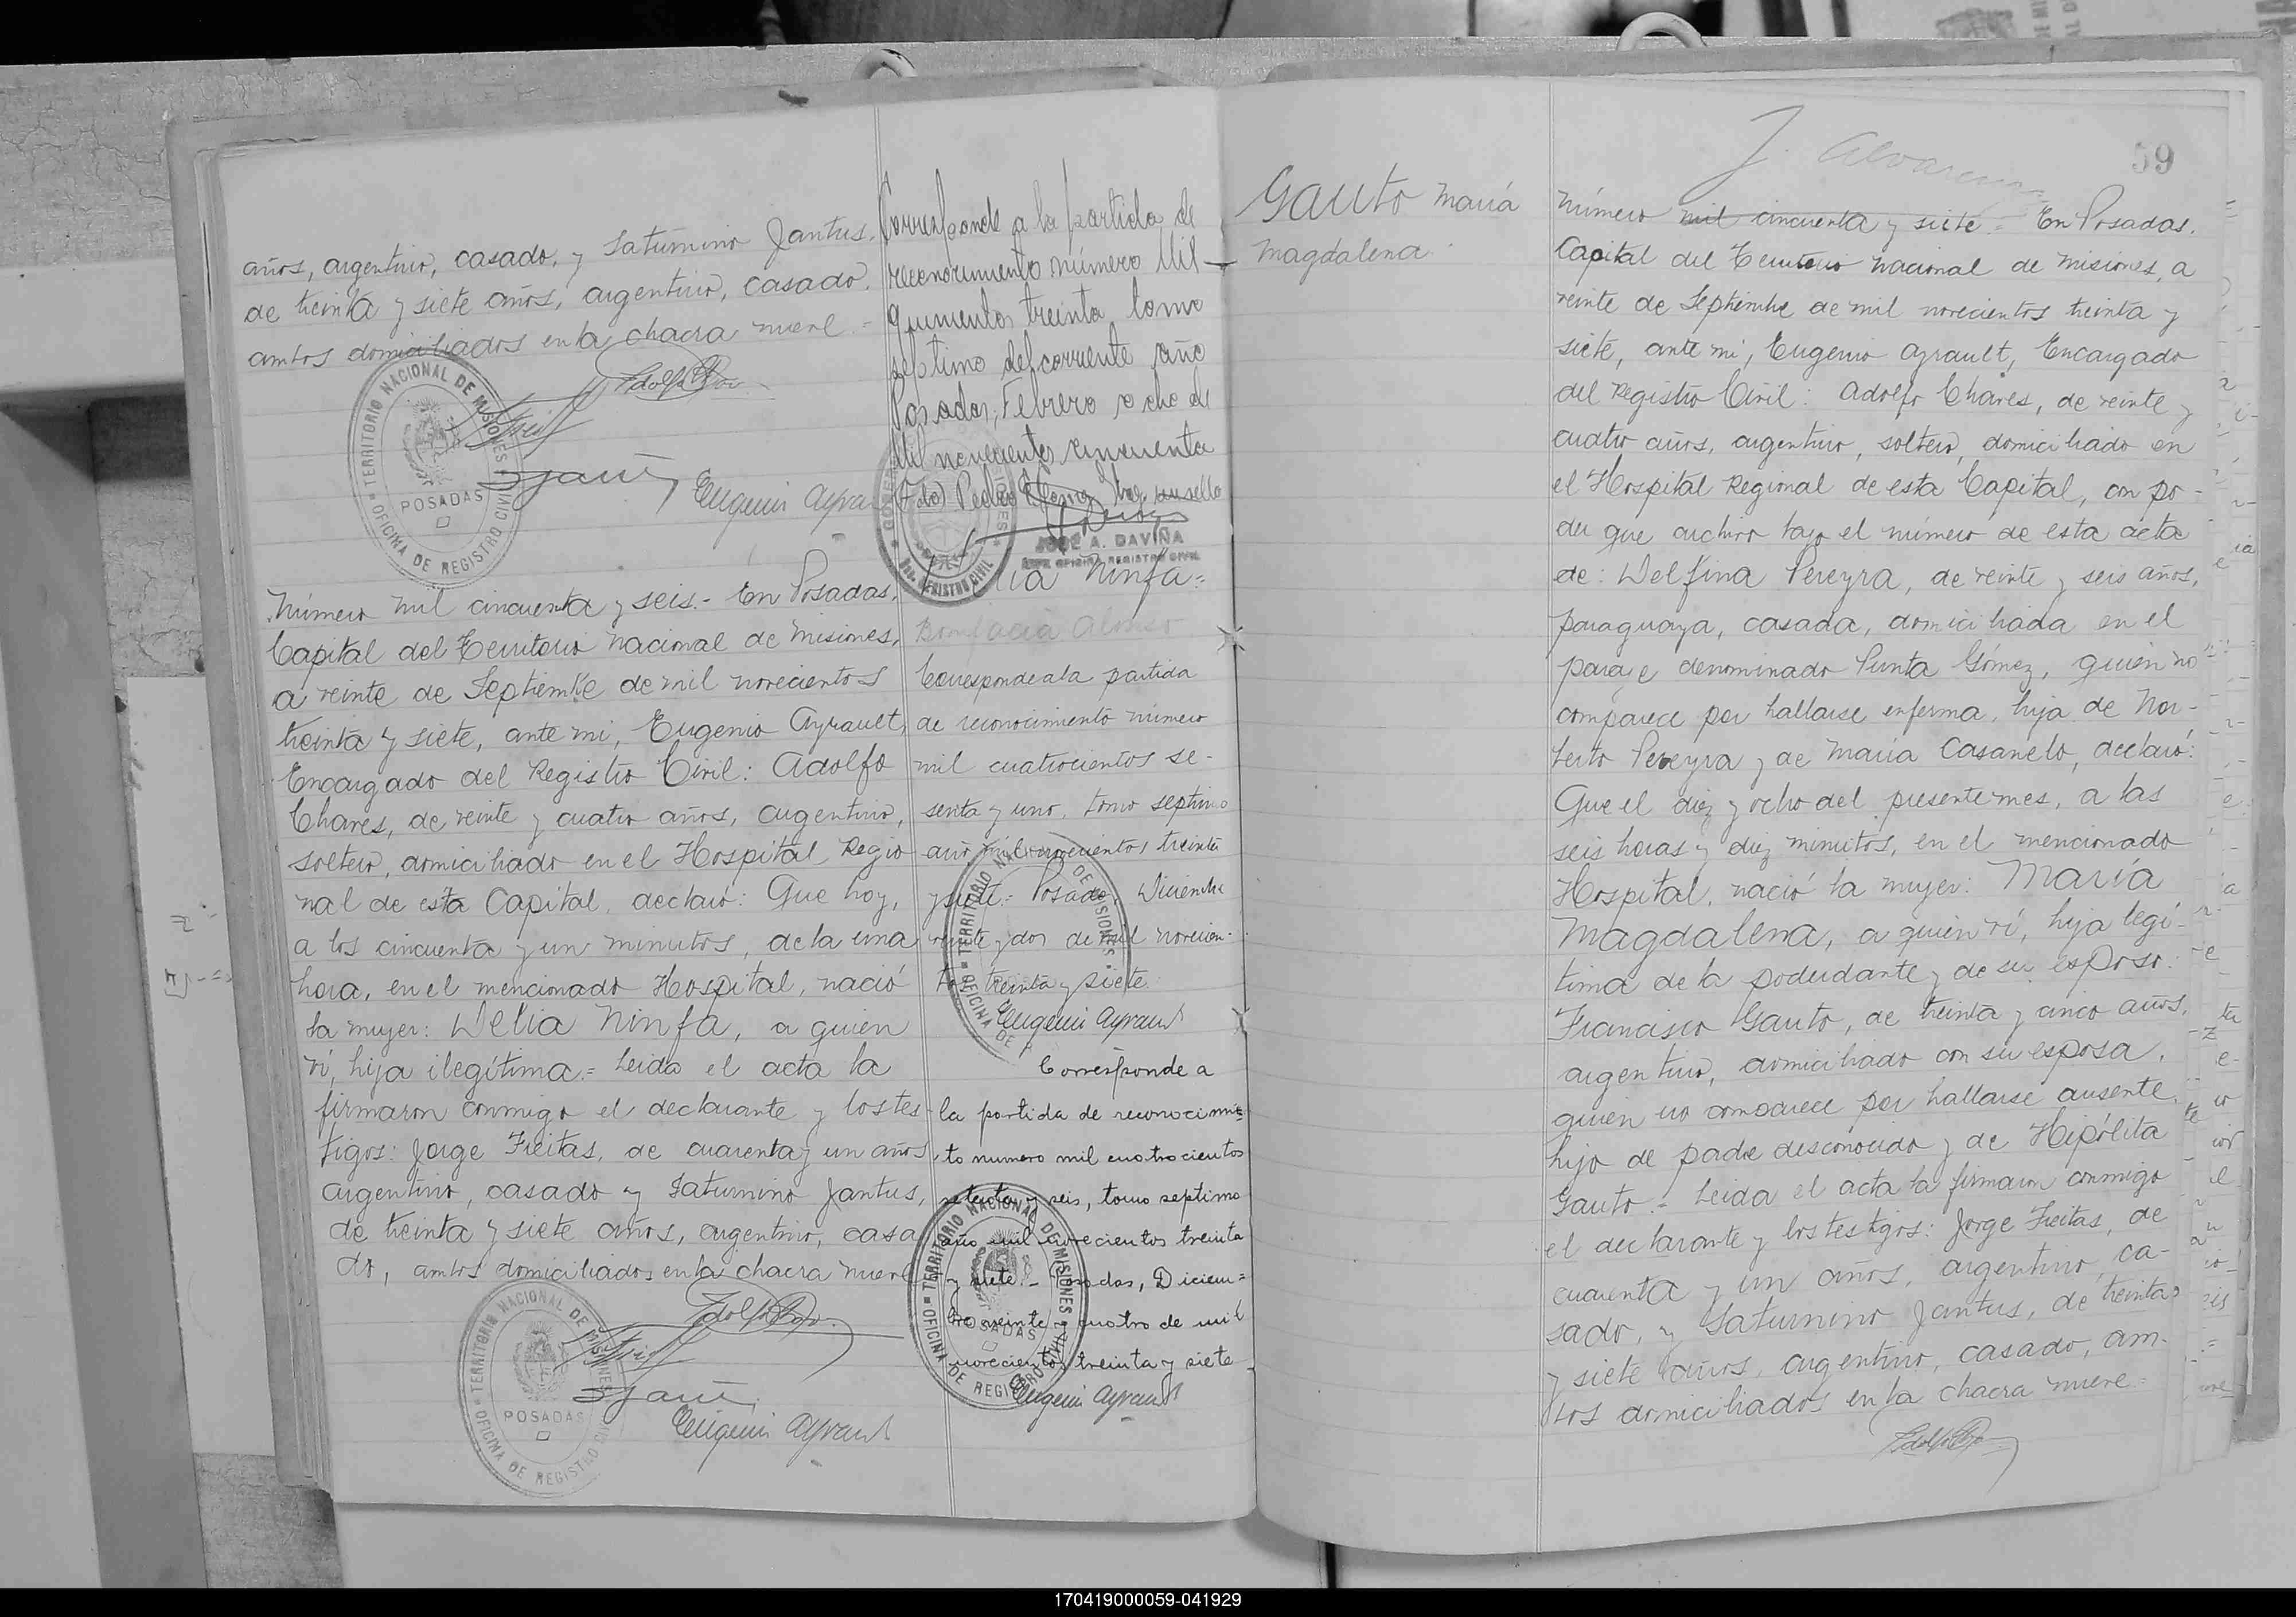 años, argentino, casado, y Saturnino Jantus,
de treinta y siete años, argentino, casado,
ambos domiciliados en la chacra nueve.=
TERRITORIO NACIONAL DE MISIONES
OFICINA DE REGISTRO CIVIL
POSADAS
Eugenio Ayrault
Corresponde a la partida de
reconocimiento número Mil
quinientos treinta tomo
septimo del corriente año
Posadas, Febrero ocho de
Mil novecientos cincuenta
(Fdo) Pedro
JOSE A. DAVIÑA
JEFE OFICINA REGISTRO CIVIL
Número mil cincuenta y seis.- En Posadas,
Capital del Territorio Nacional de Misiones,
a veinte de Septiembre de mil novecientos
treinta y siete, ante mi, Eugenio Ayrault,
Encargado del Registro Civil: Adolfo
Chaves, de veinte y cuatro años, argentino,
soltero, domiciliado en el Hospital Regio
nal de esta Capital, declaró: Que hoy,
a los cincuenta y un minutos, de la una
hora, en el mencionado Hospital, nació
la mujer: Delia Ninfa, a quien
ví, hija ilegítima.= Leida el acta la
firmaron conmigo el declarante y los tes-
tigos: Jorge Freitas, de cuarenta y un años,
argentino, casado y Saturnino Jantus,
de treinta y siete años, argentino, casa
do, ambos domiciliados en la chacra nueve
TERRITORIO NACIONAL DE MISIONES
OFICINA DE REGISTRO CIVIL
POSADAS
Eugenio Ayrault
Delia Ninfa=
Bonifacia Alonso
Corresponde a la partida
de reconocimiento número
mil cuatrocientos se-
senta y uno, tomo septimo
año mil novecientos treinta
y siete.= Posadas, Diciembre
veinte y dos de mil novecien-
tos treinta y siete
Eugenio Ayrault
Corresponde a
la partida de reconocimie=
to numero mil cuatrocientos
setenta y seis, tomo septimo
año mil novecientos treinta
y siete.- Posadas, Diciem=
bre veinte y cuatro de mil
novecientos treinta y siete
TERRITORIO NACIONAL DE MISIONES
OFICINA DE REGISTRO CIVIL
POSADAS
Eugenio Ayrault
Gauto María
Magdalena.
59
Número mil cincuenta y siete.= En Posadas,
Capital del Territorio Nacional de Misiones, a
veinte de Septiembre de mil novecientos treinta y
siete, ante mi, Eugenio Ayrault, Encargado
del Registro Civil: Adolfo Chaves, de veinte y
cuatro años, argentino, soltero, domiciliado en
el Hospital Regional de esta Capital, con po-
der que archivo bajo el número de esta acta
de: Delfina Pereyra, de veinte y seis años,
paraguaya, casada, domiciliada en el
paraje denominado Punta Gómez, quien no
comparece por hallarse enferma, hija de Nor-
berto Pereyra y de María Casanelo, declaró:
Que el diez y ocho del presente mes, a las
seis horas y diez minutos, en el mencionado
Hospital, nació la mujer: María
Magdalena, a quien ví, hija legí-
tima de la poderdante y de su esposo:
Francisco Gauto, de treinta y cinco años,
argentino, domiciliado con su esposa,
quien no comparece por hallarse ausente,
hijo de padre desconocido y de Hipólita
Gauto.- Leida el acta la firmaron conmigo
el declarante y los testigos: Jorge Freitas, de
cuarenta y un años, argentino, ca-
sado, y Saturnino Jantus, de treinta
y siete años, argentino, casado, am-
bos domiciliados en la chacra nueve=
170419000059-041929